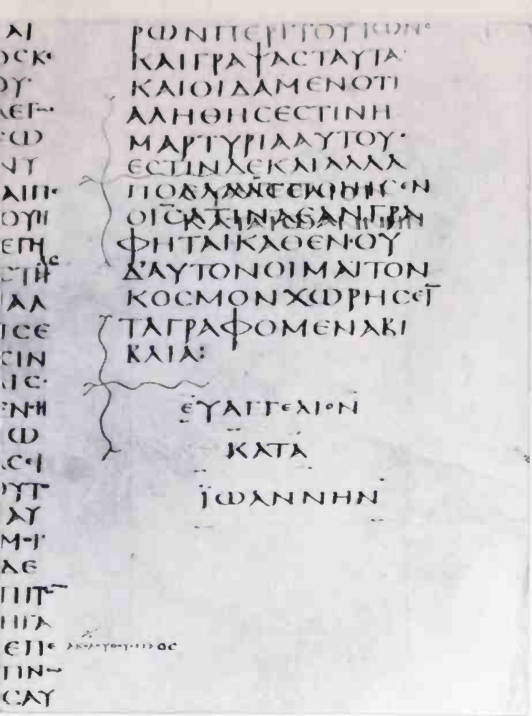 ΑΙ
ΟϹΚ
ΟΥ
ΛΕΓ
ΕΩ
ΝΤ
ΑΙΠ
ΟΥΠ
ΕΠΗ
ϹΤΗ
ΑΛ
ΙϹΕ
ϹΙΝ
ΙϹ
ΕΝΗ
Ω
ΟΥΤ
ΑΥ
ΔΕ
ΠΙΤ
ΗΓΑ
ΕΠ
ΤΙΝ
ϹΑΥ
ΡΩΝΠΕΡΙΤΟΥΤΩΝ·
ΚΑΙΓΡΑΨΑϹΤΑΥΤΑ·
ΚΑΙΟΙΔΑΜΕΝΟΤΙ
ΑΛΗΘΗϹΕϹΤΙΝΗ
ΜΑΡΤΥΡΙΑΑΥΤΟΥ·
ΕϹΤΙΝΔΕΚΑΙΑΛΛΑ
ΑΤΙΝΑΕΑΝΓΡΑ
ΦΗΤΑΙΚΑΘΕΝΟΥ
Δ'ΑΥΤΟΝΟΙΜΑΙΤΟΝ
ΚΟϹΜΟΝΧΩΡΗϹΕΙ
ΤΑΓΡΑΦΟΜΕΝΑΒΙ
ΒΛΙΑ:
ΕΥΑΓΓΕΛΙΟΝ
ΚΑΤΑ
ΪΩΑΝΝΗΝ